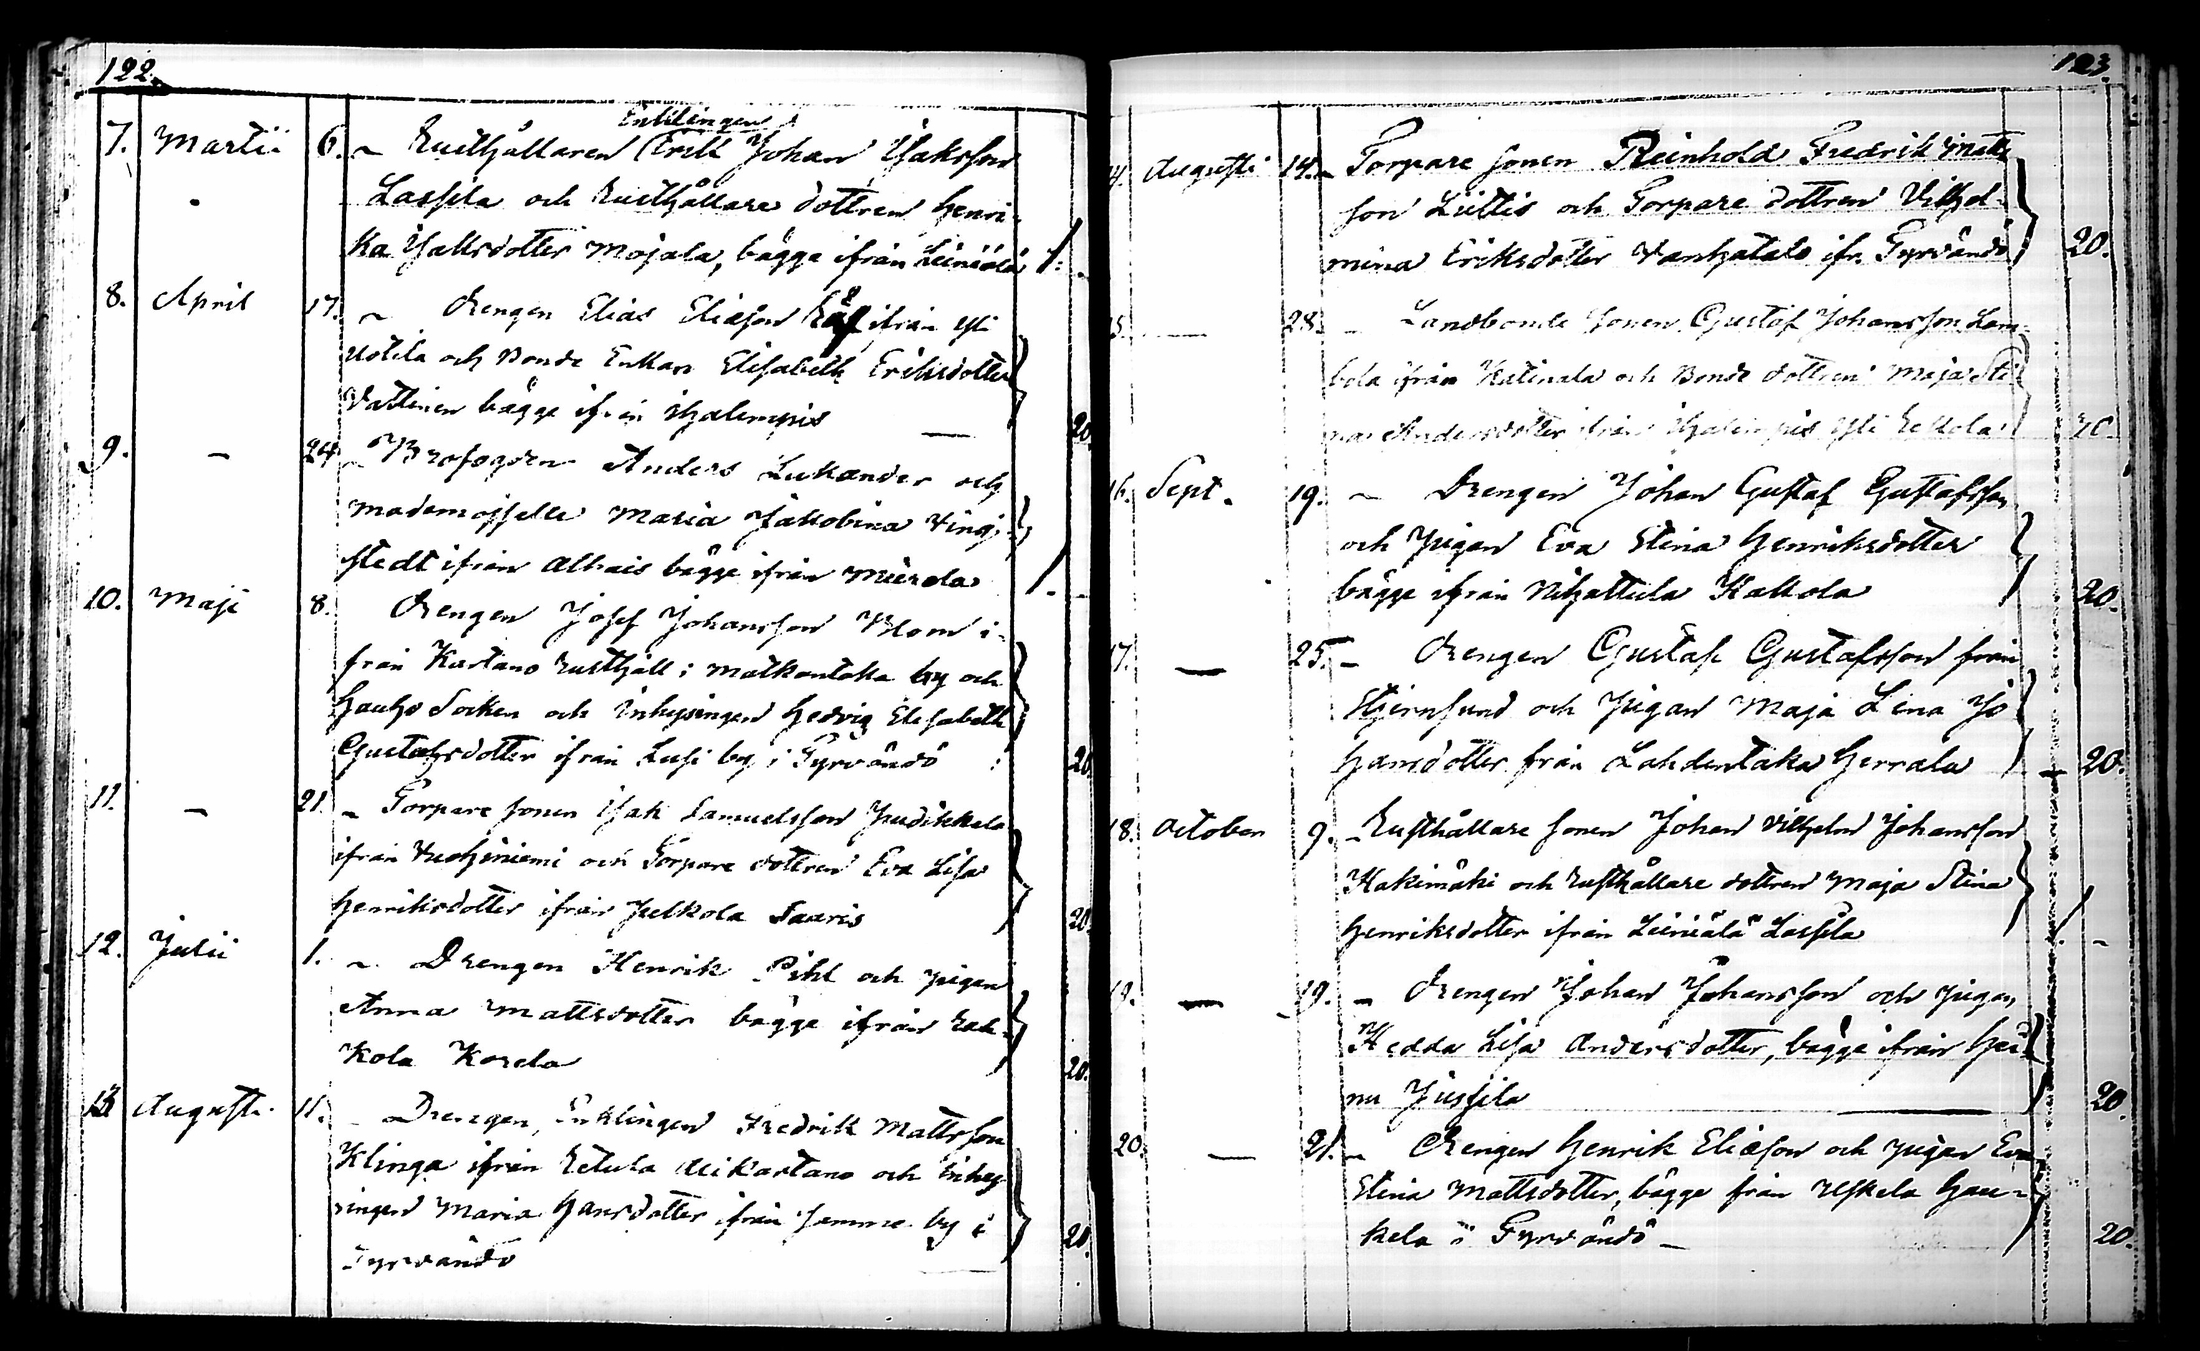 122.
Enklingen
7. Martii 6. Rusthållaren Erik Johan Isaksson
Lassila och Rusthållare dottren Henri-
ka Isaksdotter Mojala, bägge ifrån Leiniälä 1. -
8. April 17. Drengen Elias Eliasson ifrån Yli
Uotila och Bonde Enkan Elisabeth Eriksdotter
Vattinen bägge ifrån Ihalempis 20.
9. - 24. Brofogden Anders Lukander och
mademoisselle Maria Jakobina Ving-
stedt ifrån Alhais bägge ifrån Mierola 1. -
10. Maji 8. Drengen Josef Johansson Blom i-
från Kartano Rusthåll i Matkantaka by och
Hauho Socken och Inhysingen Hedvig Elisabeth
Gustafsdotter ifrån Lusi by i Tyrvändö 20.
11. - 21. Torpare sonen Isak Samuelsson
ifrån Vuohiniemi och Torpare dottren Eva Lisa
Henriksdotter ifrån Pelkola Saaris 20.
12. Julii 1. Drengen Henrik Pihl och pigan
Anna Mattsdotter bägge ifrån Rek-
kola Korela 20.
13 Augusti. 11. Drengen, Enklingen Fredrik Mattsson
Klinga ifrån Retula Alikartano och Inhy-
singen Maria Hansdotter ifrån samma by i
Tyrvändö 20.
123.
14. Augusti 14. Torpare sonen Reinhold Fredrik Matts
son Liettis och Torpare dottren Vilhel-
mina Eriksdotter Vanhatalo ifr. Tyrvändö 20.
15. - 28. Landbonde sonen Gustaf Johansson Lam-
bola ifrån Katinala och Bonde dottren Maja Sti
na Andersdotter ifrån Ihalempis Yli Rekola 20.
16. Sept. 19. Drengen Johan Gustaf Gustafsson
och Pigan Eva Stina Henriksdotter
bägge ifrån Nihattula Kakkola 20.
17. - 25. Drengen Gustaf Gustafsson från
Stjernsund och Pigan Maja Lena Jo
hansdotter från Lahdentaka Herrala 20.
18. October 9. Rusthållare sonen Johan Vilhelm Johansson
Kakimäki och Rusthållare dottren Maja Stina
Henriksdotter ifrån Leiniälä Lassila 1. -
19. - 19. Drengen Johan Johansson och pigan
Hedda Lisa Andersdotter, bägge ifrån Hei-
nu Jussila 20.
20. - 21. Drengen Henrik Eliasson och pigan Eva
Stina Mattsdotter, bägge från Uskela Hau-
kela i Tyrvändö 20.